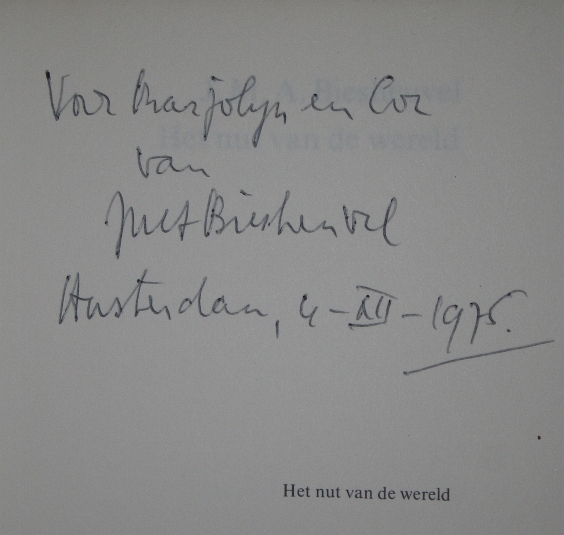 Voor Marjolijn en Cor
van
JMA Biesheuvel
Amsterdam, 4-XII-1975.
Het nut van de wereld
J.M.A. Biesheuvel
Het nut van de wereld